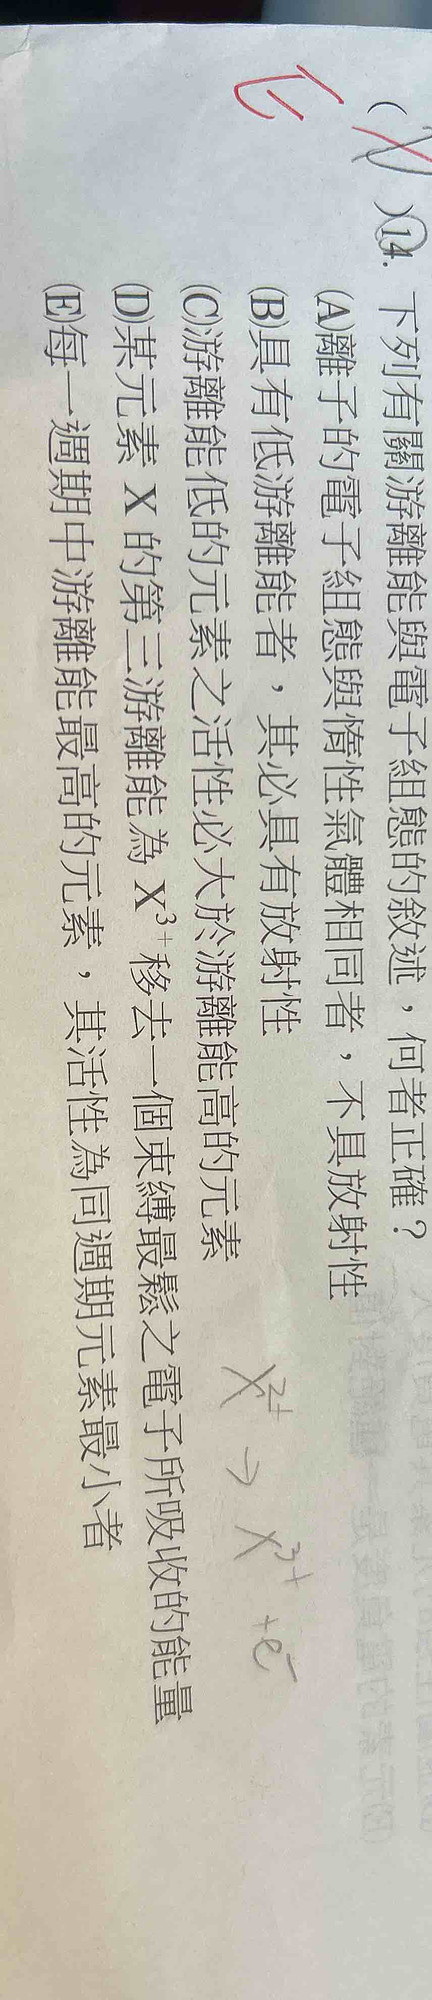 E
( )14. 下列有關游離能與電子組態的敘述，何者正確？
(A)離子的電子組態與惰性氣體相同者，不具放射性
(B)具有低游離能者，其必具有放射性
(C)游離能低的元素之活性必大於游離能高的元素
(D)某元素 X 的第三游離能為 X³⁺移去一個束縛最鬆之電子所吸收的能量
X²⁺ → X³⁺ + e⁻
(E)每一週期中游離能最高的元素，其活性為同週期元素最小者